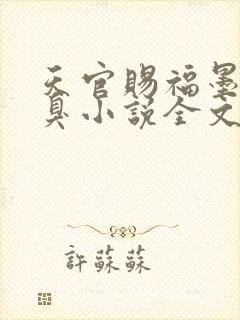 天官賜福墨
真小說全文
許蘇蘇